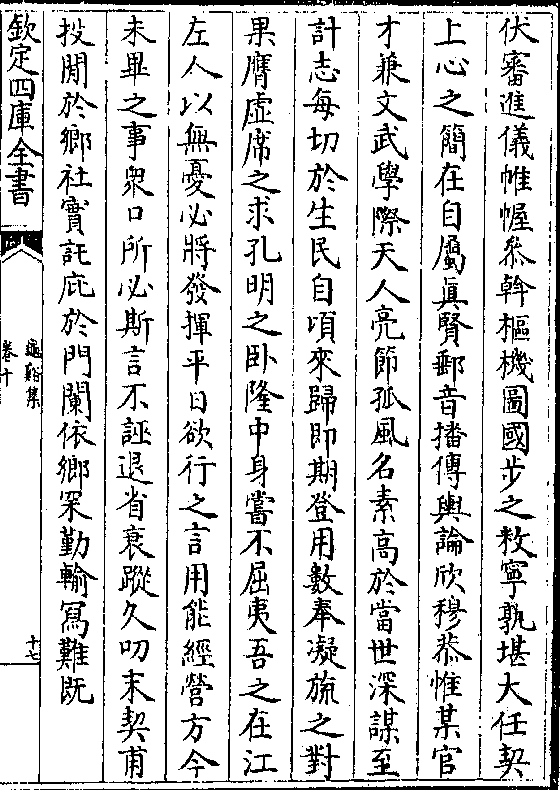 伏審進儀帷幄叅斡樞機圖國步之敉寧孰堪大任契
上心之簡在自屬眞賢郵音播傳輿論欣穆恭惟某官
才兼文武學際天人亮節孤風名素高於當世深謀至
計志每切於生民自頃來歸即期登用數奉凝旒之對
果膺虛席之求孔明之卧隆中身嘗不屈夷吾之在江
左人以無憂必將發揮平日欲行之言用能經營方今
未畢之事衆口所必斯言不誣退省衰蹤久叨末契甫
投閒於鄉社實託庇於門闌依鄉罙勤輸寫難既
欽定四庫全書
龜谿集
卷十
十七